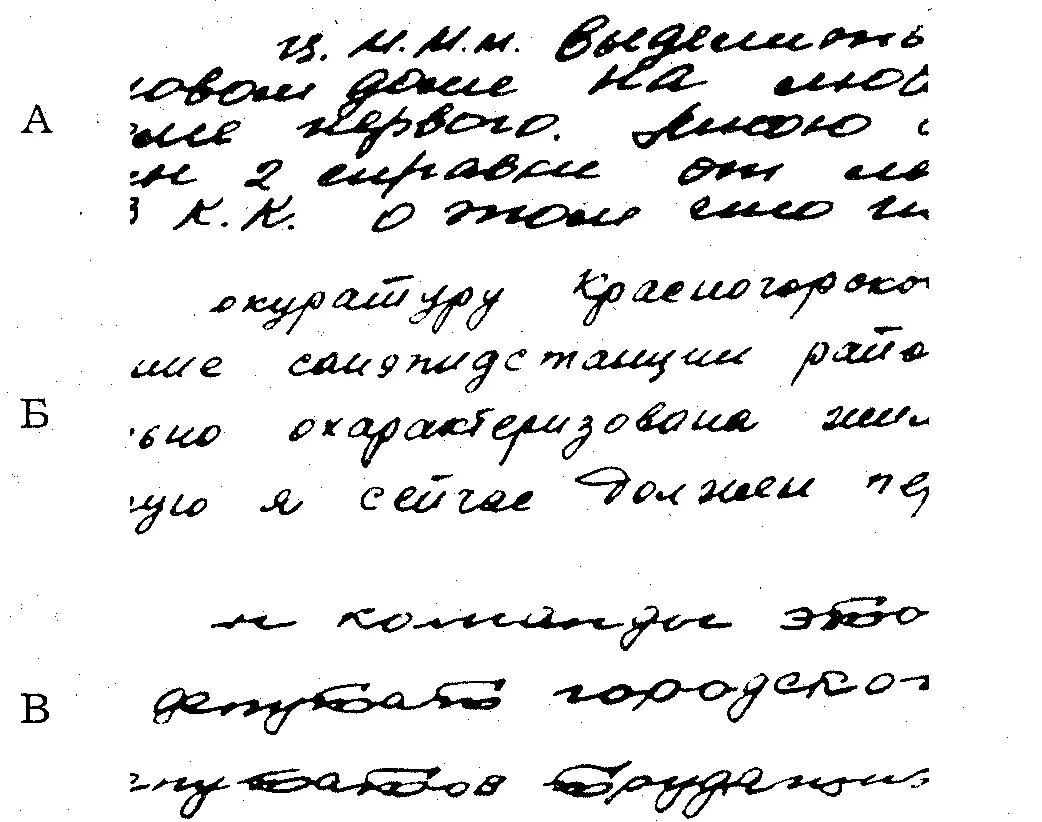 Ц. М.М.м. Выделить
ловом доме на люб
еме первого.
ен 2 справки от
в К.К. о том что
А
окуратуру Красногорско
ние санэпидстанции райо
Б
ьно охарактеризована жил
ую я сейчас должен пе
и команды это
В
депутат городског
епутатов трудящих